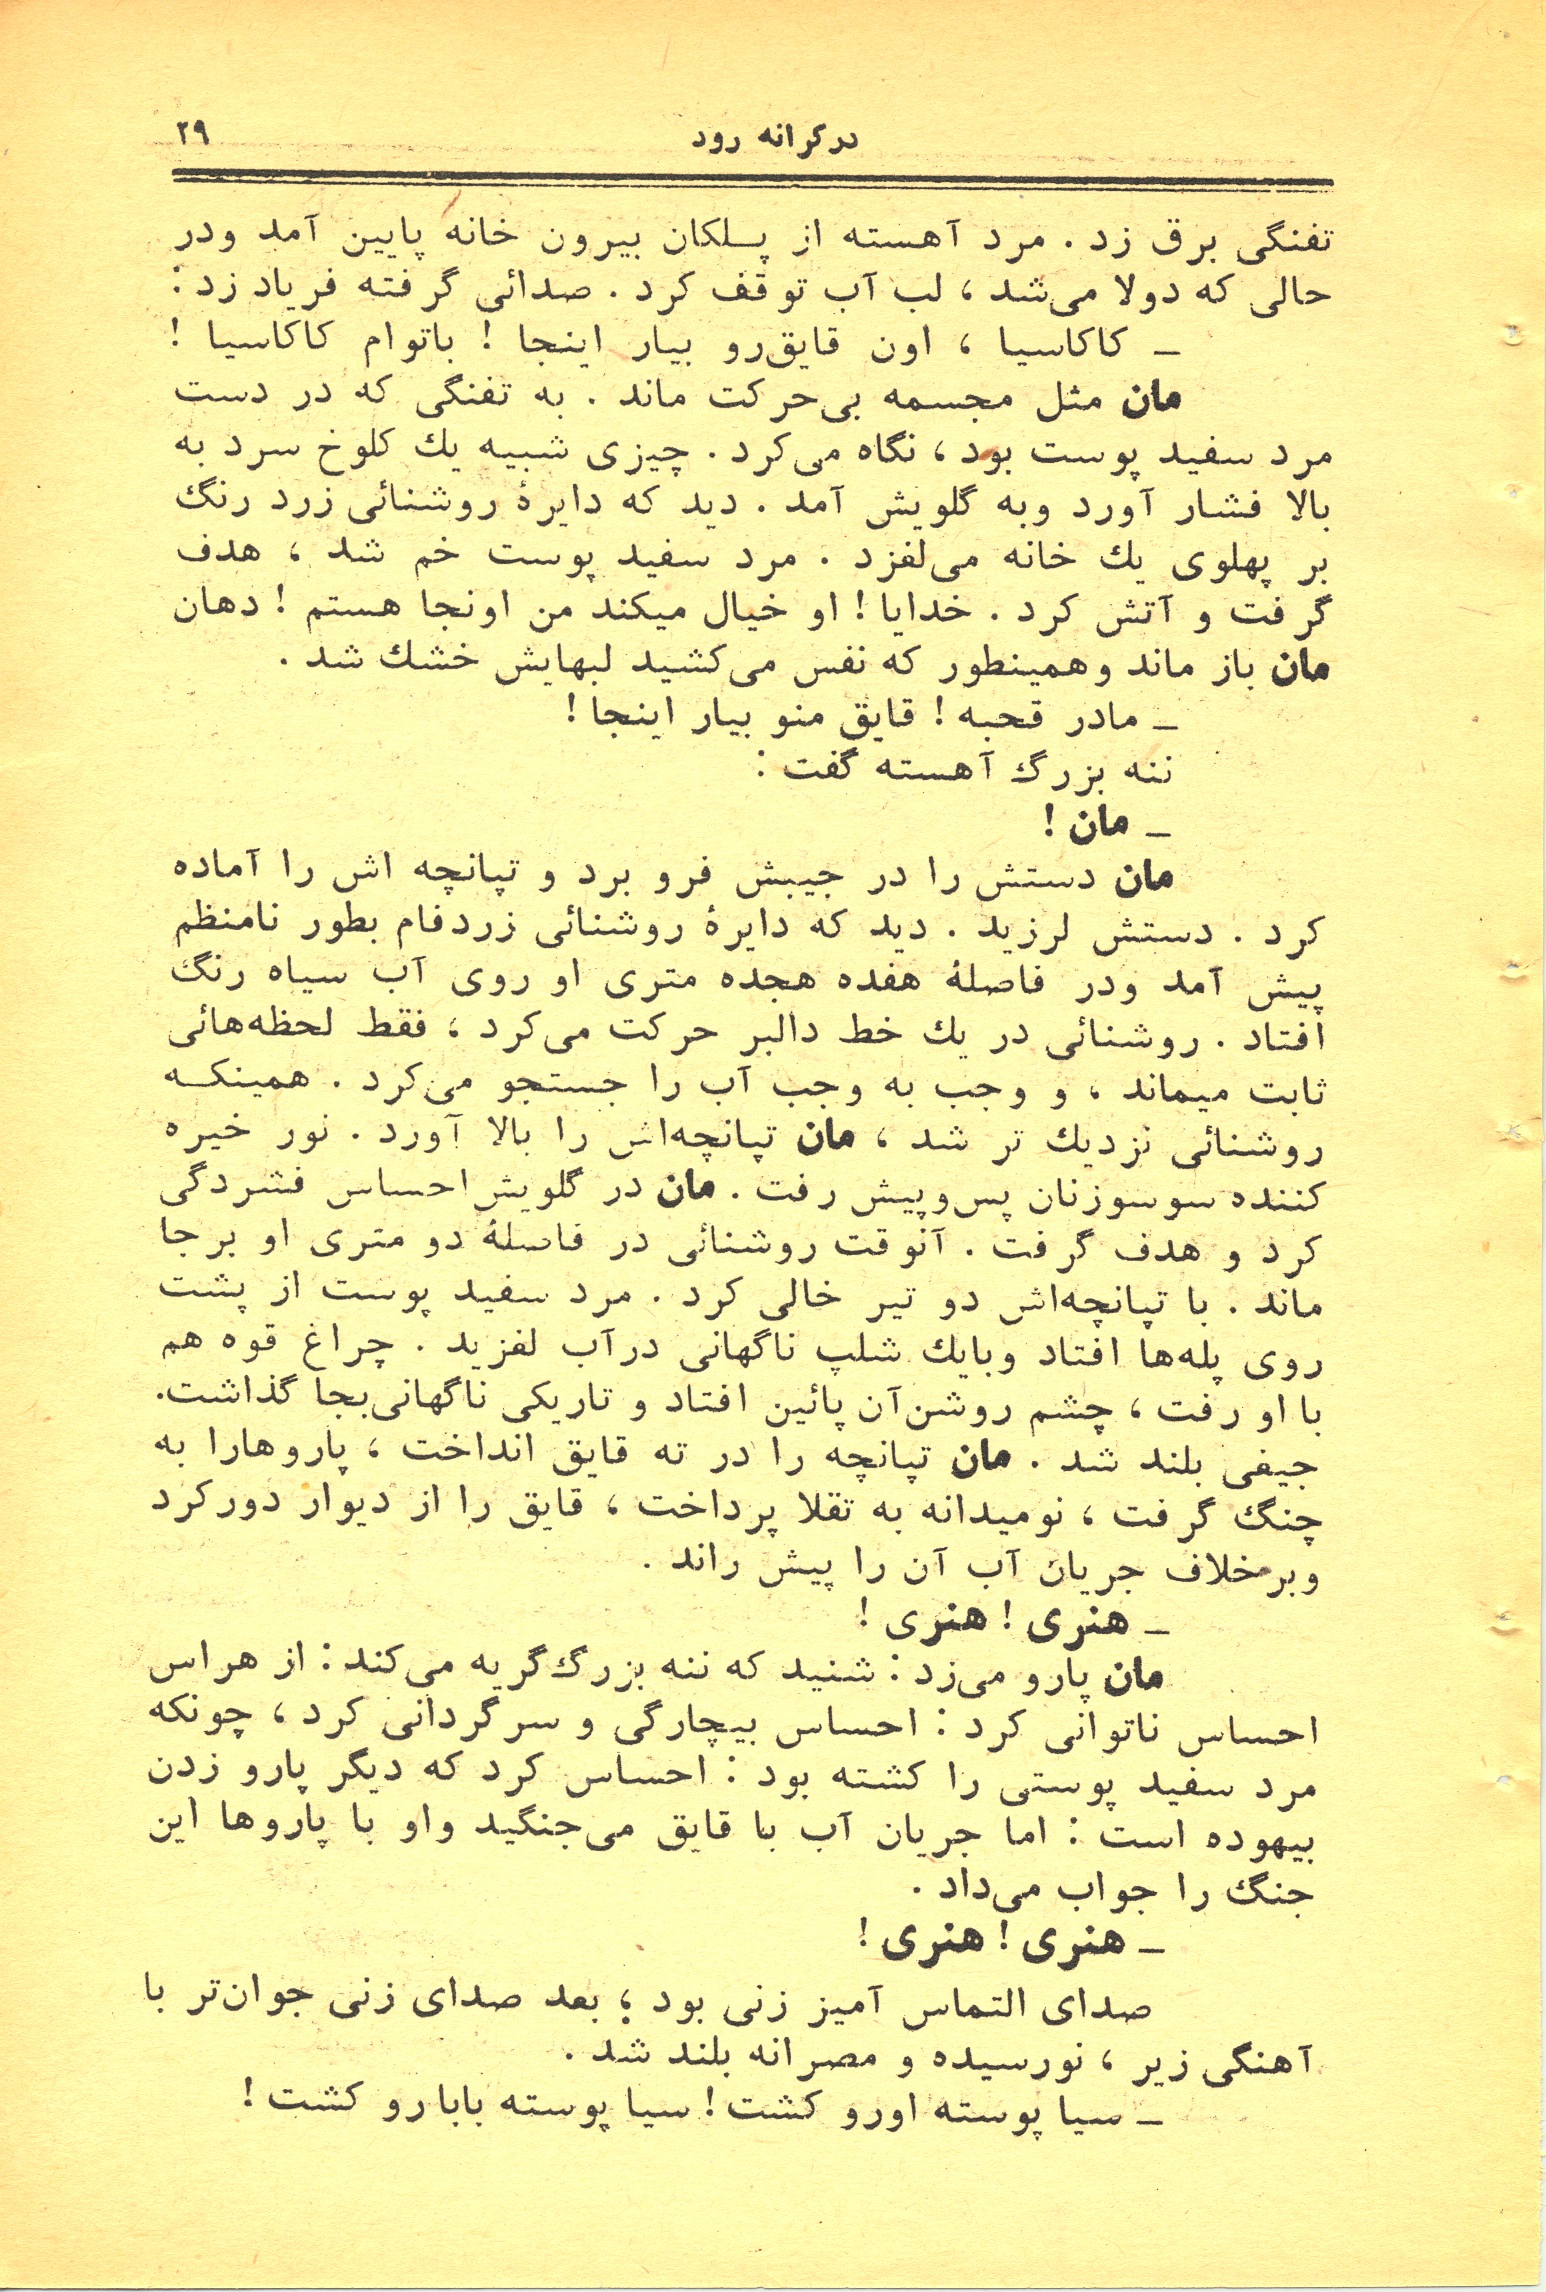 در کرانه رود
۲۹
تفنگی برق زد . مرد آهسته از پلکان بیرون خانه پایین آمد ودر
حالی که دولا می‌شد ، لب آب توقف کرد . صدائی گرفته فریاد زد :
ـ کاکاسیا ، اون قایق‌رو بیار اینجا ! باتوام کاکاسیا !
مان مثل مجسمه بی‌حرکت ماند . به تفنگی که در دست
مرد سفید پوست بود ، نگاه می‌کرد . چیزی شبیه یك کلوخ سرد به
بالا فشار آورد وبه گلویش آمد . دید که دایرهٔ روشنائی زرد رنگ
بر پهلوی یك خانه می‌لغزد . مرد سفید پوست خم شد ، هدف
گرفت و آتش کرد . خدایا ! او خیال میکند من اونجا هستم ! دهان
مان باز ماند وهمینطور که نفس می‌کشید لبهایش خشك شد .
ـ مادر قحبه ! قایق منو بیار اینجا !
ننه بزرگ آهسته گفت :
ـ مان !
مان دستش را در جیبش فرو برد و تپانچه اش را آماده
کرد . دستش لرزید . دید که دایرهٔ روشنائی زردفام بطور نامنظم
پیش آمد ودر فاصلهٔ هفده هجده متری او روی آب سیاه رنگ
افتاد . روشنائی در یك خط دالبر حرکت می‌کرد ، فقط لحظه‌هائی
ثابت میماند ، و وجب به وجب آب را جستجو می‌کرد . همینکه
روشنائی نزدیك تر شد ، مان تپانچه‌اش را بالا آورد . نور خیره
کننده سوسوزنان پس‌وپیش رفت . مان در گلویش احساس فشردگی
کرد و هدف گرفت . آنوقت روشنائی در فاصلهٔ دو متری او برجا
ماند . با تپانچه‌اش دو تیر خالی کرد . مرد سفید پوست از پشت
روی پله‌ها افتاد وبایك شلپ ناگهانی درآب لغزید . چراغ قوه هم
با او رفت ، چشم روشن‌آن پائین افتاد و تاریکی ناگهانی‌بجا گذاشت.
جیغی بلند شد . مان تپانچه را در ته قایق انداخت ، پاروهارا به
چنگ گرفت ، نومیدانه به تقلا پرداخت ، قایق را از دیوار دورکرد
وبرخلاف جریان آب آن را پیش راند .
ـ هنری ! هنری !
مان پارو می‌زد : شنید که ننه بزرگ‌گریه می‌کند : از هراس
احساس ناتوانی کرد : احساس بیچارگی و سرگردانی کرد ، چونکه
مرد سفید پوستی را کشته بود : احساس کرد که دیگر پارو زدن
بیهوده است : اما جریان آب با قایق می‌جنگید واو با پاروها این
جنگ را جواب می‌داد .
ـ هنری ! هنری !
صدای التماس آمیز زنی بود ؛ بعد صدای زنی جوان‌تر با
آهنگی زیر ، نورسیده و مصرانه بلند شد .
ـ سیا پوسته اورو کشت ! سیا پوسته بابارو کشت !